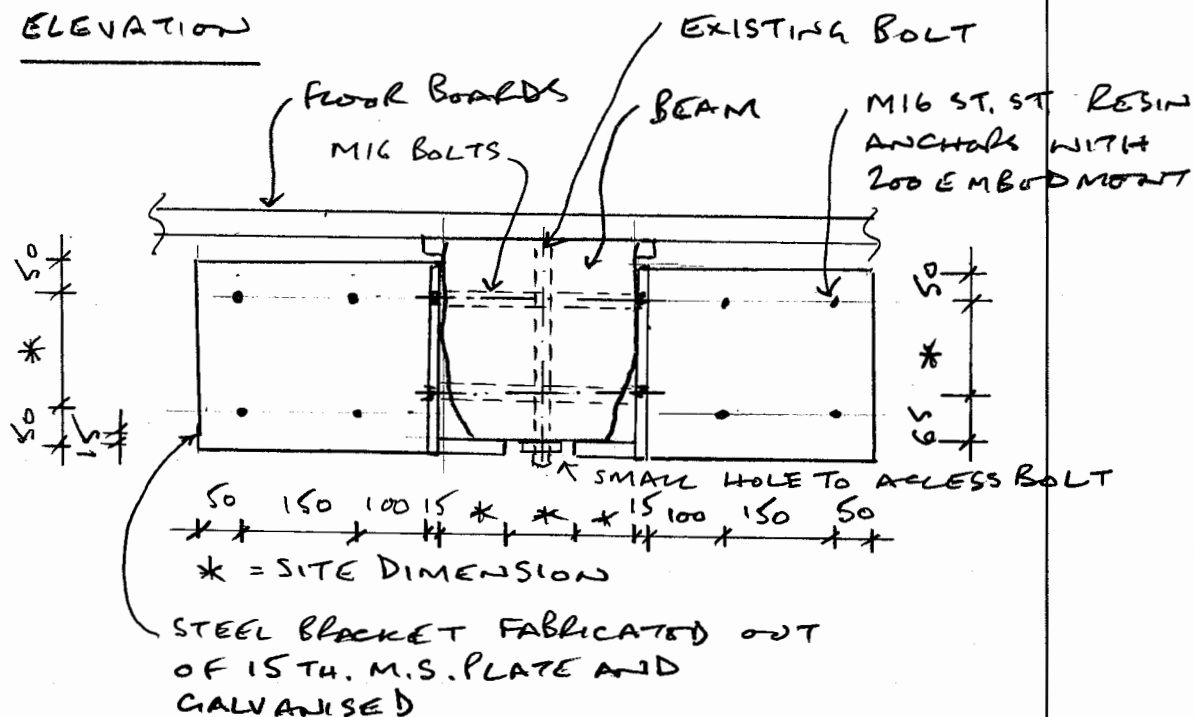 ELEVATION
EXISTING BOLT
FLOOR BOARDS
BEAM
M16 ST. ST RESIN
ANCHORS WITH
200 EMBEDMENT
M16 BOLTS
50
*
50
15
50
*
65
SMALL HOLE TO ACCESS BOLT
50 150 100 15 * * * 15 100 150 50
* = SITE DIMENSION
STEEL BRACKET FABRICATED OUT
OF 15 TH. M.S. PLATE AND
GALVANISED